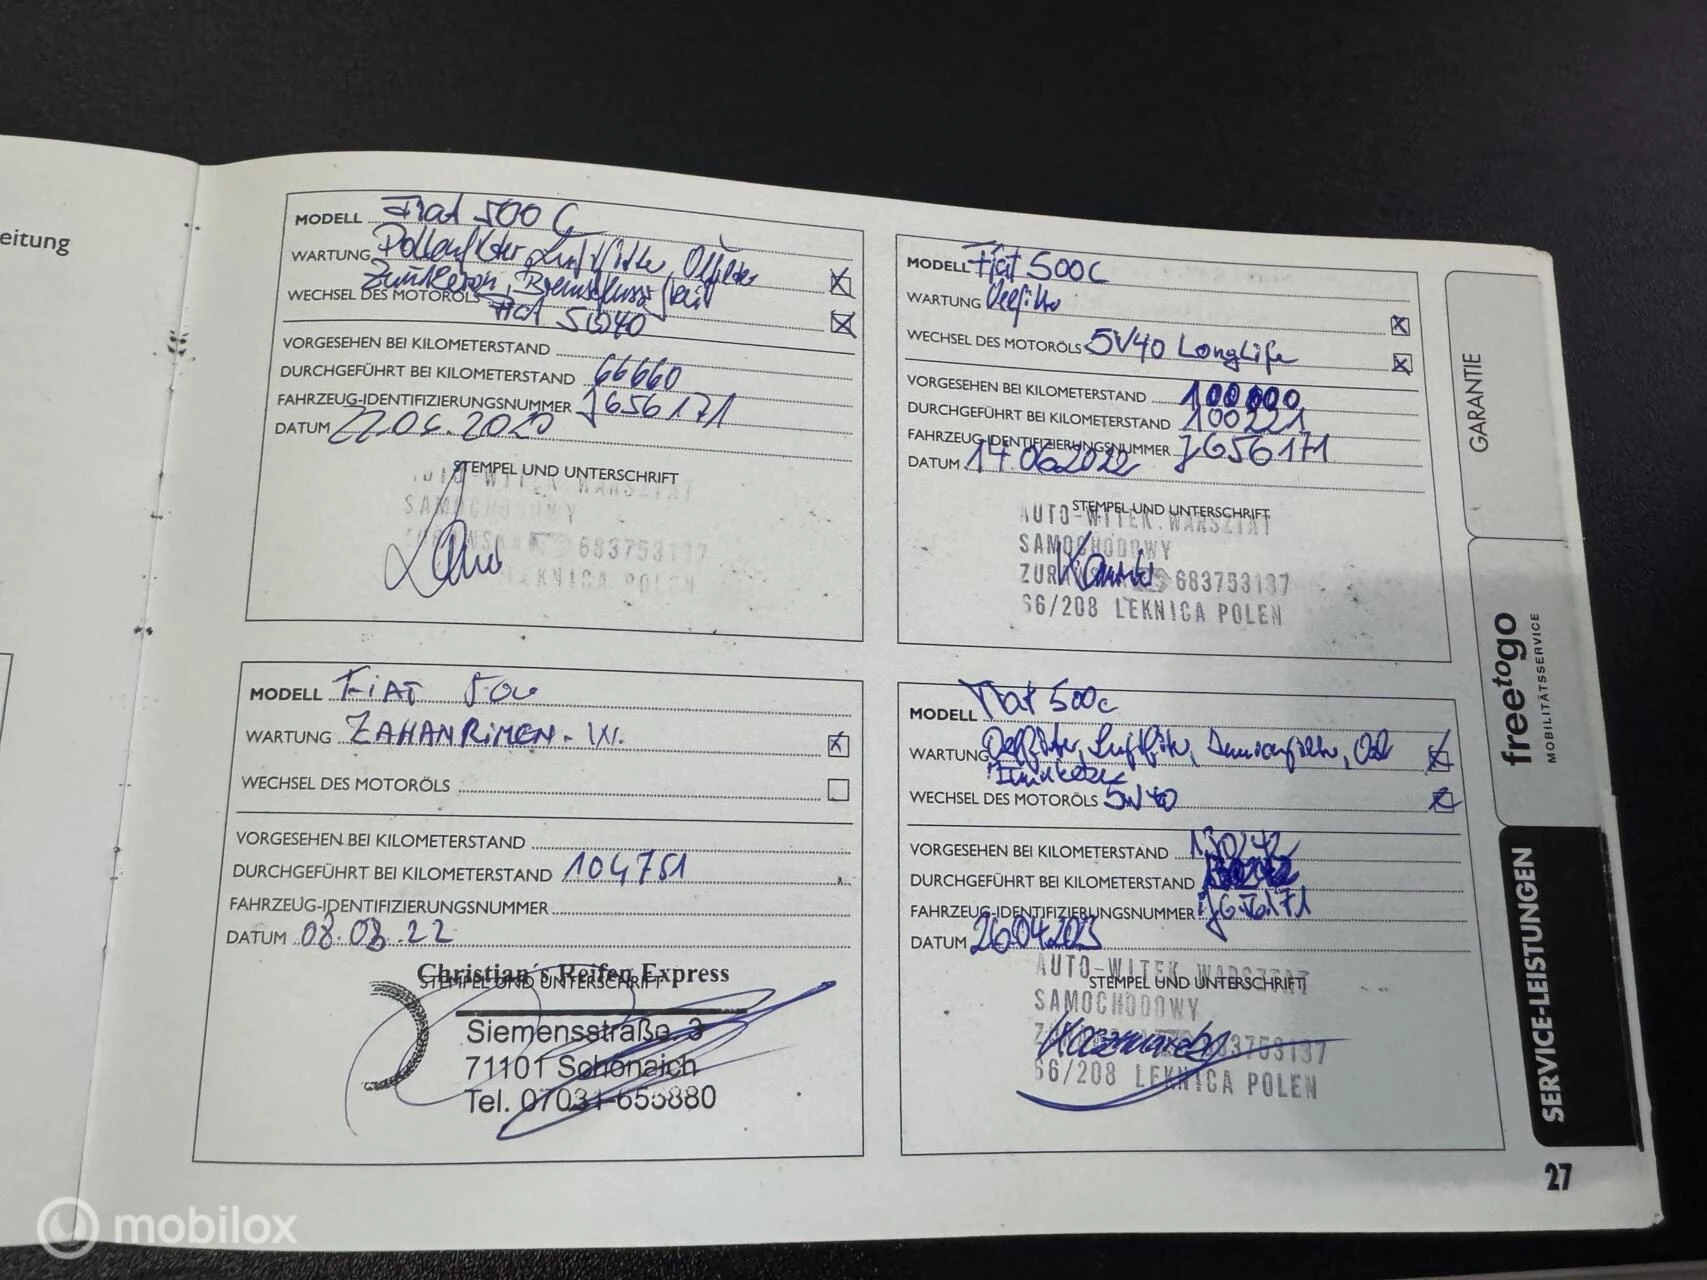 eitung
MODELL Fiat 500 C
WARTUNG Pollenfilter, Luftfilter, Ölfilter
Zündkerzen, Bremsflüssigkeit
WECHSEL DES MOTORÖLS Fiat 5W40
VORGESEHEN BEI KILOMETERSTAND
DURCHGEFÜHRT BEI KILOMETERSTAND 66660
FAHRZEUG-IDENTIFIZIERUNGSNUMMER J656171
DATUM 22.06.2020
STEMPEL UND UNTERSCHRIFT
AUTO-WITEK WARSZTAT
SAMOCHODOWY
683753137
LEKNICA POLEN
MODELL Fiat 500C
WARTUNG
WECHSEL DES MOTORÖLS 5W40 LongLife
VORGESEHEN BEI KILOMETERSTAND 100000
DURCHGEFÜHRT BEI KILOMETERSTAND 100221
FAHRZEUG-IDENTIFIZIERUNGSNUMMER J656171
DATUM 14.06.2022
STEMPEL UND UNTERSCHRIFT
AUTO-WITEK WARSZTAT
SAMOCHODOWY
683753137
66/208 LEKNICA POLEN
MODELL FiAT 500
WARTUNG ZAHANRiMEN-W.
WECHSEL DES MOTORÖLS
VORGESEHEN BEI KILOMETERSTAND
DURCHGEFÜHRT BEI KILOMETERSTAND 104751
FAHRZEUG-IDENTIFIZIERUNGSNUMMER
DATUM 08.08.22
Christian´s Reifen Express
STEMPEL UND UNTERSCHRIFT
Siemensstraße 3
71101 Schönaich
Tel. 07031-655880
MODELL Fiat 500c
WARTUNG Oelfilter, Luftfilter,
WECHSEL DES MOTORÖLS 5W40
VORGESEHEN BEI KILOMETERSTAND 130242
DURCHGEFÜHRT BEI KILOMETERSTAND
FAHRZEUG-IDENTIFIZIERUNGSNUMMER
DATUM 26.04.2023
AUTO-WITEK WARSZTAT
STEMPEL UND UNTERSCHRIFT
SAMOCHODOWY
683753137
66/208 LEKNICA POLEN
GARANTIE
freetogo
MOBILITÄTSSERVICE
SERVICE-LEISTUNGEN
27
mobilox